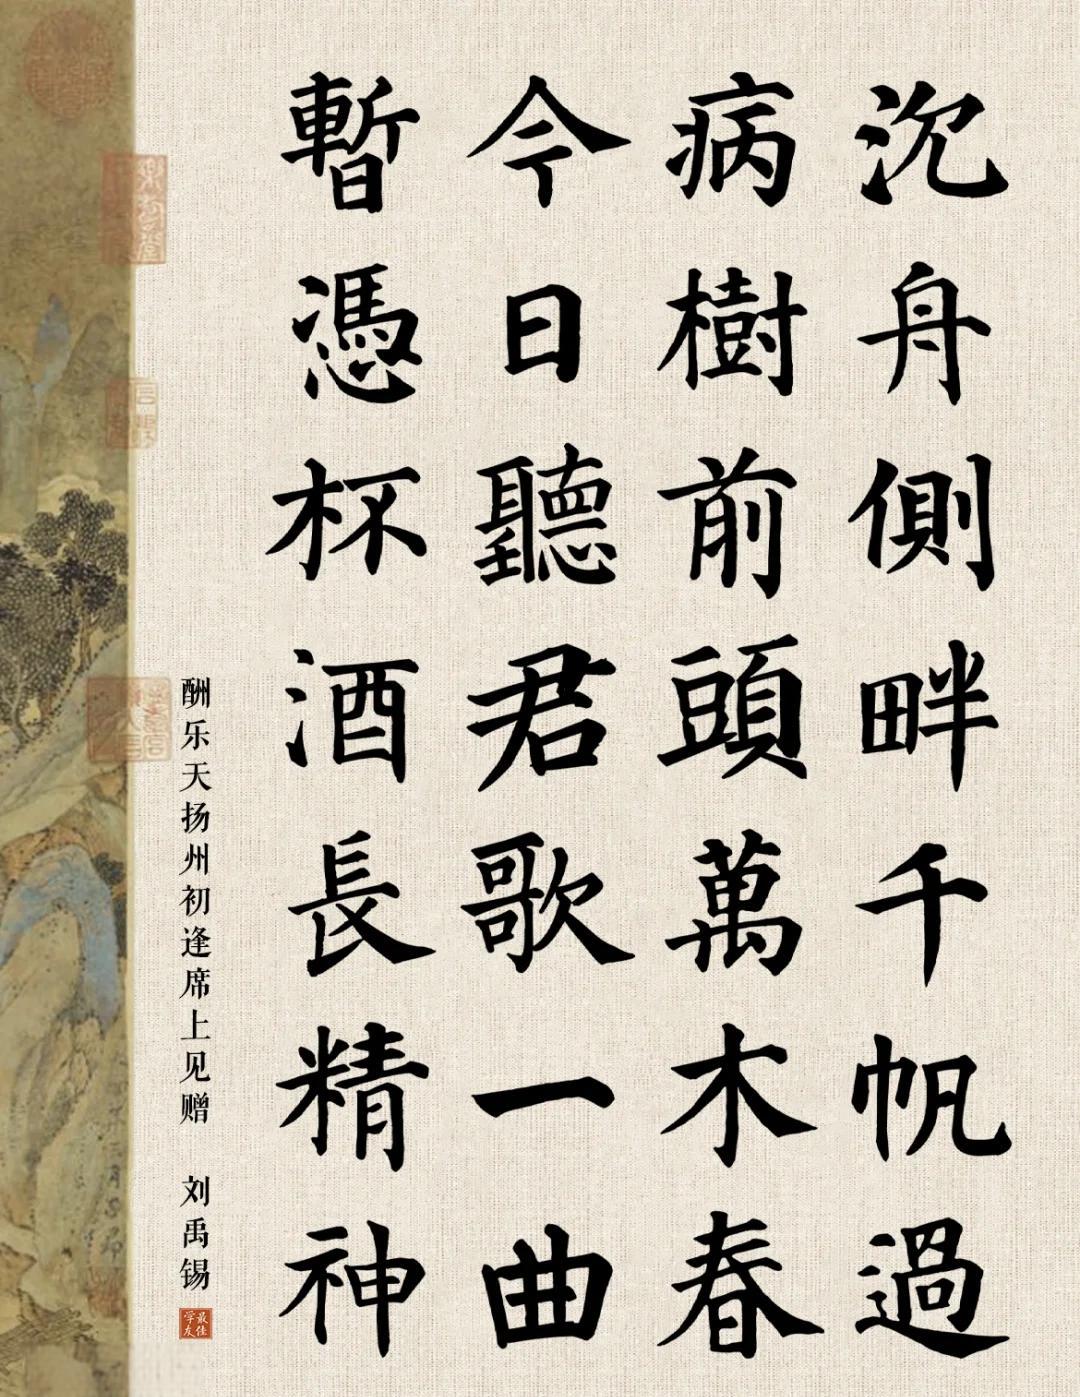 沉舟側畔千帆過
病樹前頭萬木春
今日聽君歌一曲
暫憑杯酒長精神
酬乐天扬州初逢席上见赠 刘禹锡
最佳学友